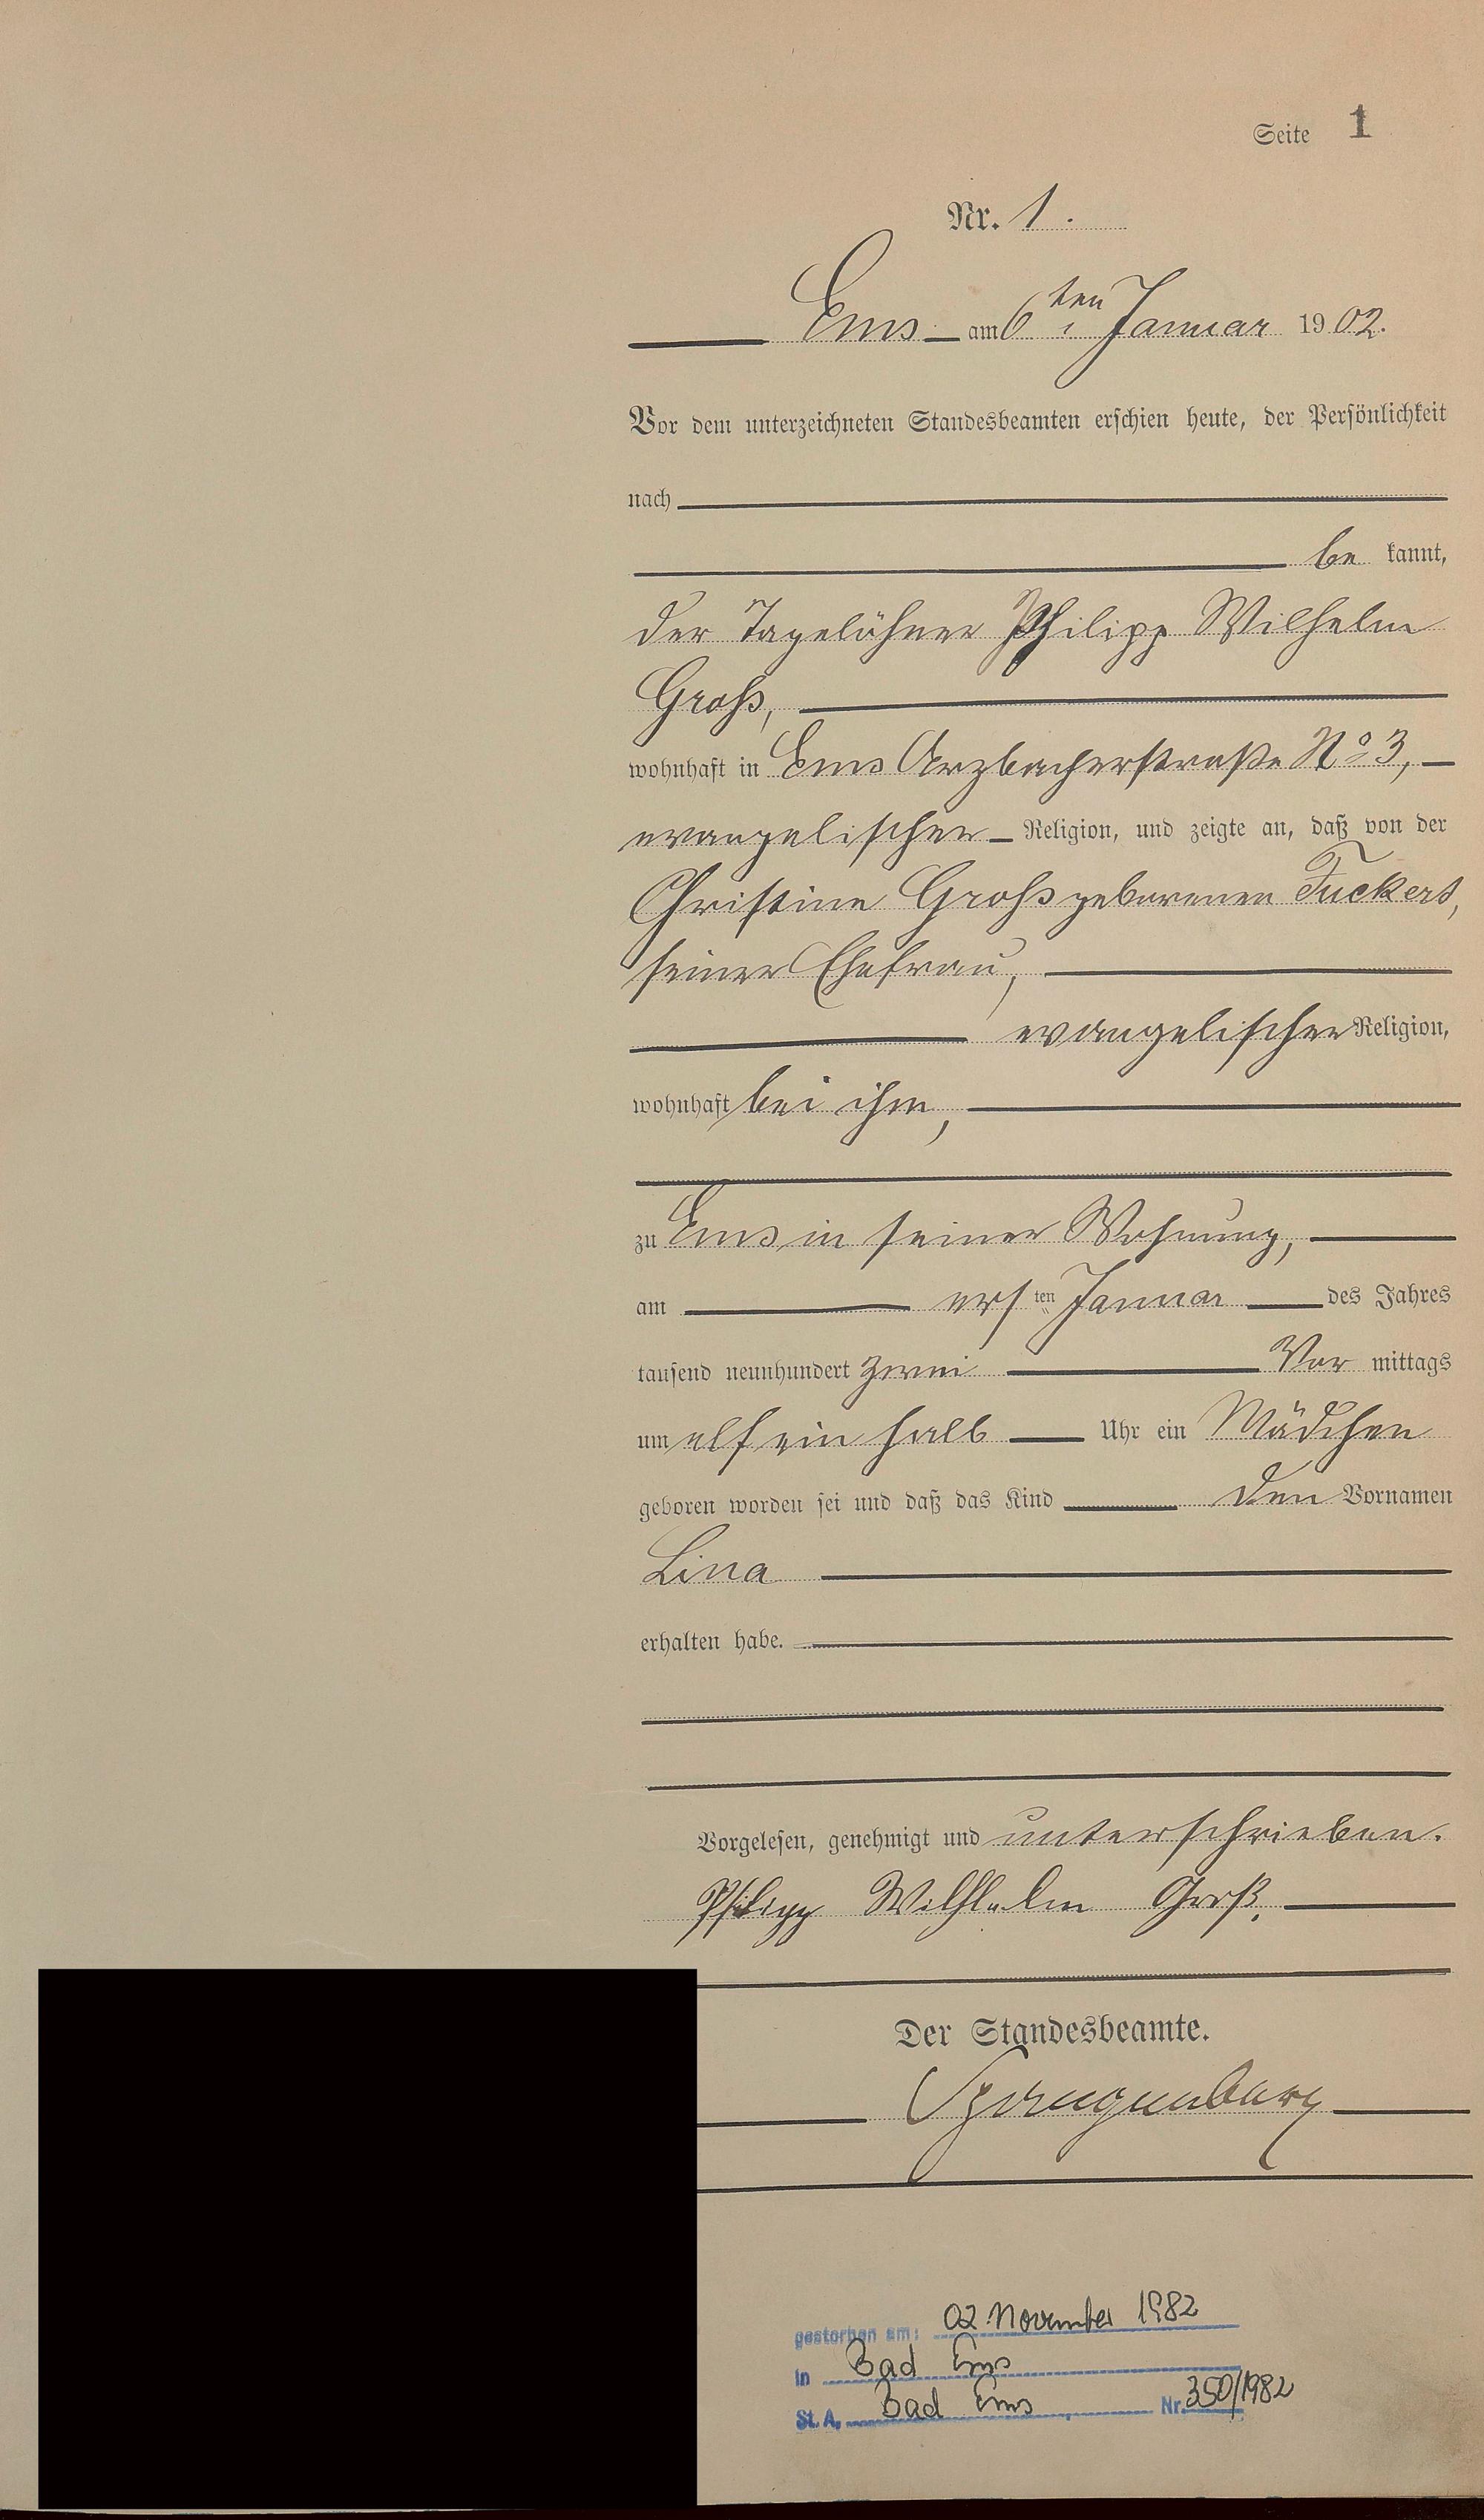 Seite 1
Nr. 1.
Ems am 6ten Januar 1902.
Vor dem unterzeichneten Standesbeamten erschien heute, der Persönlichkeit
nach
be kannt,
der Tagelöhner Philipp Wilhelm
Groß,
wohnhaft in Ems Arzbacherstraße No 3,
evangelischer Religion, und zeigte an, daß von der
Christine Groß geborenen Fuckert,
seiner Ehefrau,
evangelischer Religion,
wohnhaft bei ihm,
zu Ems in seiner Wohnung,
am ersten Januar des Jahres
tausend neunhundert zwei Vor mittags
um elf ein halb Uhr ein Mädchen
geboren worden sei und daß das Kind den Vornamen
Lina
erhalten habe.
Vorgelesen, genehmigt und unterschrieben.
Philipp Wilhelm Groß.
Der Standesbeamte.
gestorben am: 02. November 1982
in Bad Ems
St. A. Bad Ems Nr. 350/1982